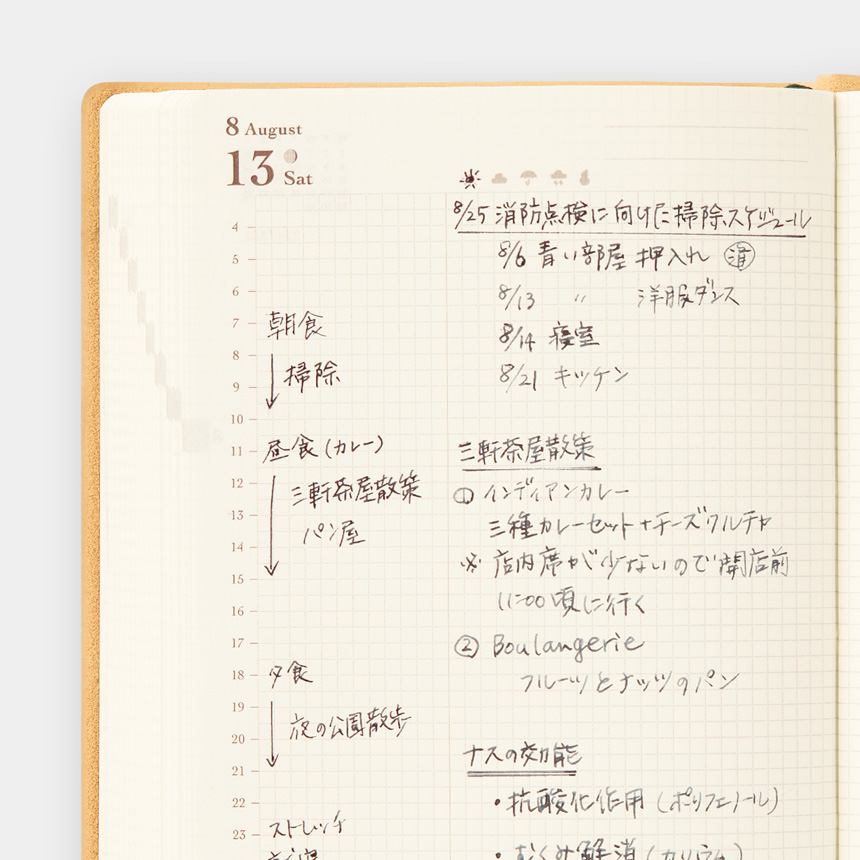 8 August
13 Sat
4
5
6
7
8
9
10
11
12
13
14
15
16
17
18
19
20
21
22
23
朝食
掃除
昼食(カレー)
三軒茶屋散策
パン屋
夕食
夜の公園散歩
ストレッチ
8/25 消防点検に向けた掃除スケジュール
8/6 青い部屋 押入れ 済
8/13 〃 洋服ダンス
8/14 寝室
8/21 キッチン
三軒茶屋散策
① インディアンカレー
三種カレーセット+チーズクルチャ
※ 店内席が少ないので開店前
11:00頃に行く
② Boulangerie
フルーツとナッツのパン
ナスの効能
・抗酸化作用(ポリフェノール)
・むくみ解消(カリウム)